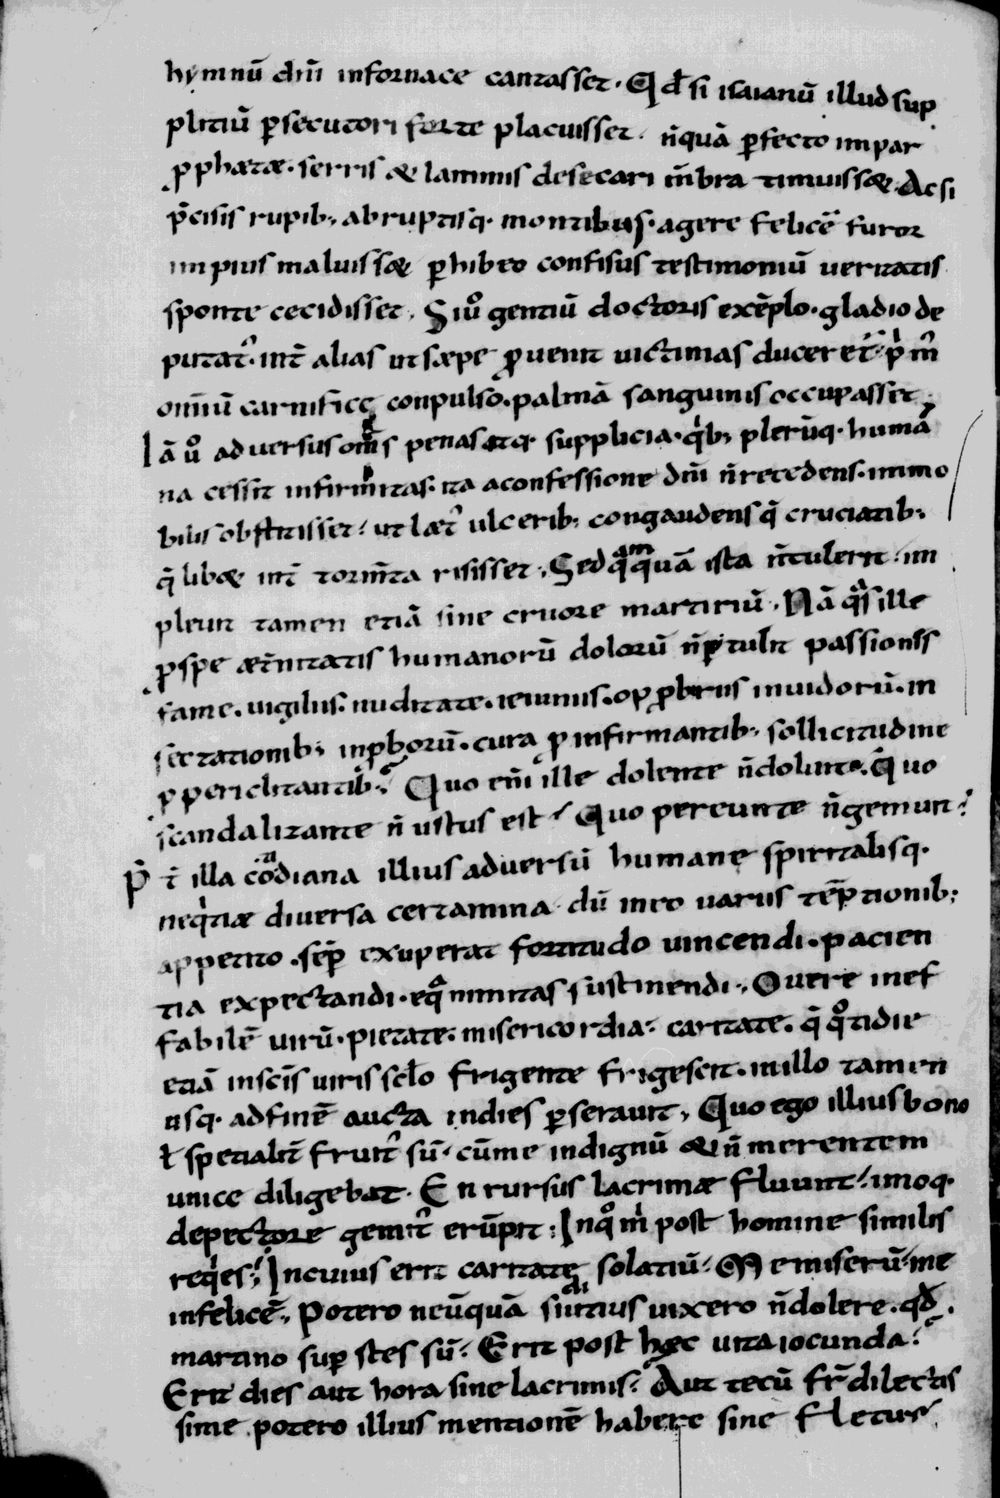 hymnū dñi infornace cantasset. Qđ si isaianū illud sup
plitiū ꝑsecutori forte placuisset. ñquā ꝑfecto impar
ꝓphætæ. serris & laminis desecari m̄bra timuiss&. Ac si
p̄cisis rupib; abruptisq; montibus. agere felicē furor
impius maluiss& ꝑhibeo confisus testimoniū ueritatis
sponte cecidisset. Siu͛o gentiū doctoris exēplo. gladio de
putat᷑. int̄ alias ut sæpe ꝓuenit uictimas duceret᷑. p̓m̄
omniū carnifice conpulso. palmā sanguinis occupasset.
Iā u͛o aduersus om̄s penas atq; supplicia. qib; plerūq; humā
na cessit infirmitas. ita aconfessione dñi ñrecedens. immo
bilis obstitisset. ut læt᷑ ulcerib; congaudensq̄ cruciatib;
q̄lib& int̄ torm̄ta risisset. Sed qāmquā ista ñtulerit. im
pleuit tamen etiā sine cruore martiriū. Nā qͣs ille
ꝓ spe æt̄nitatis humanorū dolorū ñꝑtulit passiones
fame. uigiliis. nuditate. ieiuniis. opꝓbriis inuidorū. in
sectationib; inꝓborū. cura ꝓ infirmantib; sollicitudine
ꝓ periclitantib; Quo eñi ille dolente ñdoluit. Quo
scandalizante ñ ustus est? Quo pereunte ñgemuit?
P̄t̄ illa cotidiana illius aduersū humane spiritalisq;
neq̓tiæ diuersa certamina. dū in eo uariis tēptionib;
appetito. sēꝑ exuperat fortitudo uincendi. pacien
tia expectandi. eqͣnimitas sustinendi. O uere inef
fabilē uirū. pietate. misericordia. caritate. q̄ qͦtidie
etiā insc̄is uiris sc̄lo frigente frigescit. inillo tamen
usq; adfinē aucta indies ꝑseraurt. Quo ego illius bono
ł spetialit̄ fruit᷑ sū. cū me indignū & ñ merentem
unice diligebat. En rursus lacrimæ fluunt. imoq;
depectore gemit᷑ erūpit. In qͦ m̓ post homine similis
reqies? In cuius erit caritate solatiū? Me miserū. me
infelicē. Potero neūquā si diutius uixero ñdolere. qđ
martino suꝑstes sū? Erit post hęc uita iocunda?
Erit dies aut hora sine lacrimis? Aut tecū fr̄ dilectis
sime potero illius mentionē habere sine fletu?